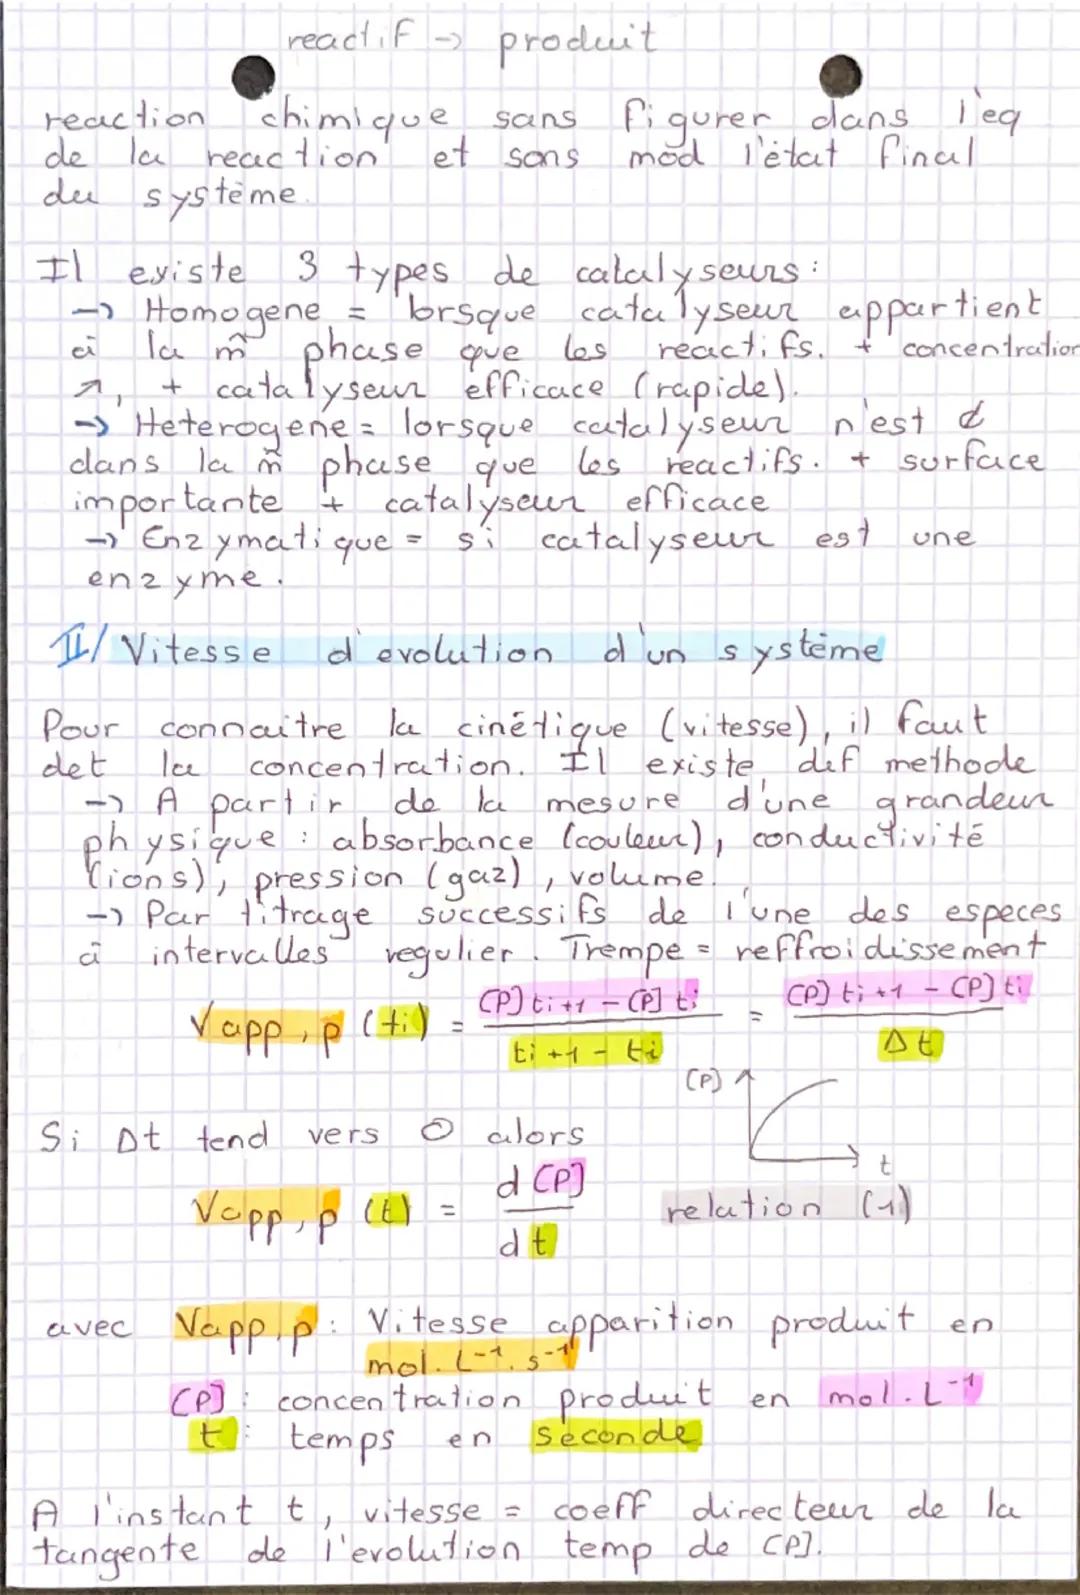 reactif → produit
reaction chimique sans figurer dans l'eq
de la reaction et sans mod l'état final
du système.
Il existe 3 types de catalyseurs :
→ Homogene = lorsque catalyseur appartient
à la m̂ phase que les reactifs. + concentration
↗, + catalyseur efficace (rapide).
→ Heterogene = lorsque catalyseur n'est
dans la m̂ phase que les reactifs. + surface
importante + catalyseur efficace
→ Enzymatique = si catalyseur est une
enzyme.
II/ Vitesse d'evolution d'un système
Pour connaitre la cinétique (vitesse), il faut
det la concentration. Il existe dif methode
→ A partir de la mesure d'une grandeur
physique : absorbance (couleur), conductivité
(ions), pression (gaz), volume.
→ Par titrage successifs de l'une des especes
à intervalles regulier. Trempe = reffroidissement
Vapp,p (ti) = [P]ti+1 - [P]ti / ti+1 - ti = [P]ti+1 - [P]ti / Δt
[P]
t
Si Δt tend vers 0 alors
Vapp,p (t) = d[P] / dt relation (1)
avec Vapp,p : Vitesse apparition produit en
mol.L⁻¹.s⁻¹
[P] : concentration produit en mol.L⁻¹
t : temps en seconde
A l'instant t, vitesse = coeff directeur de la
tangente de l'evolution temp de [P].